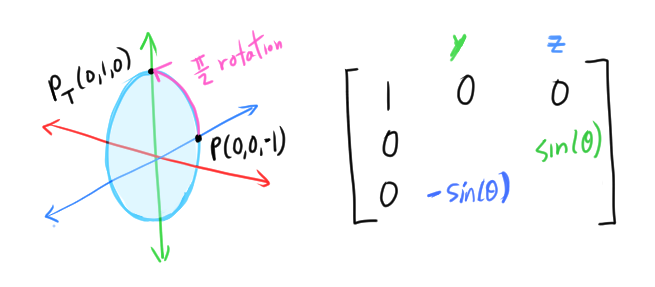 P_T(0,1,0)
π/2 rotation
P(0,0,-1)
y z
1 0 0
0 sin(θ)
0 -sin(θ)